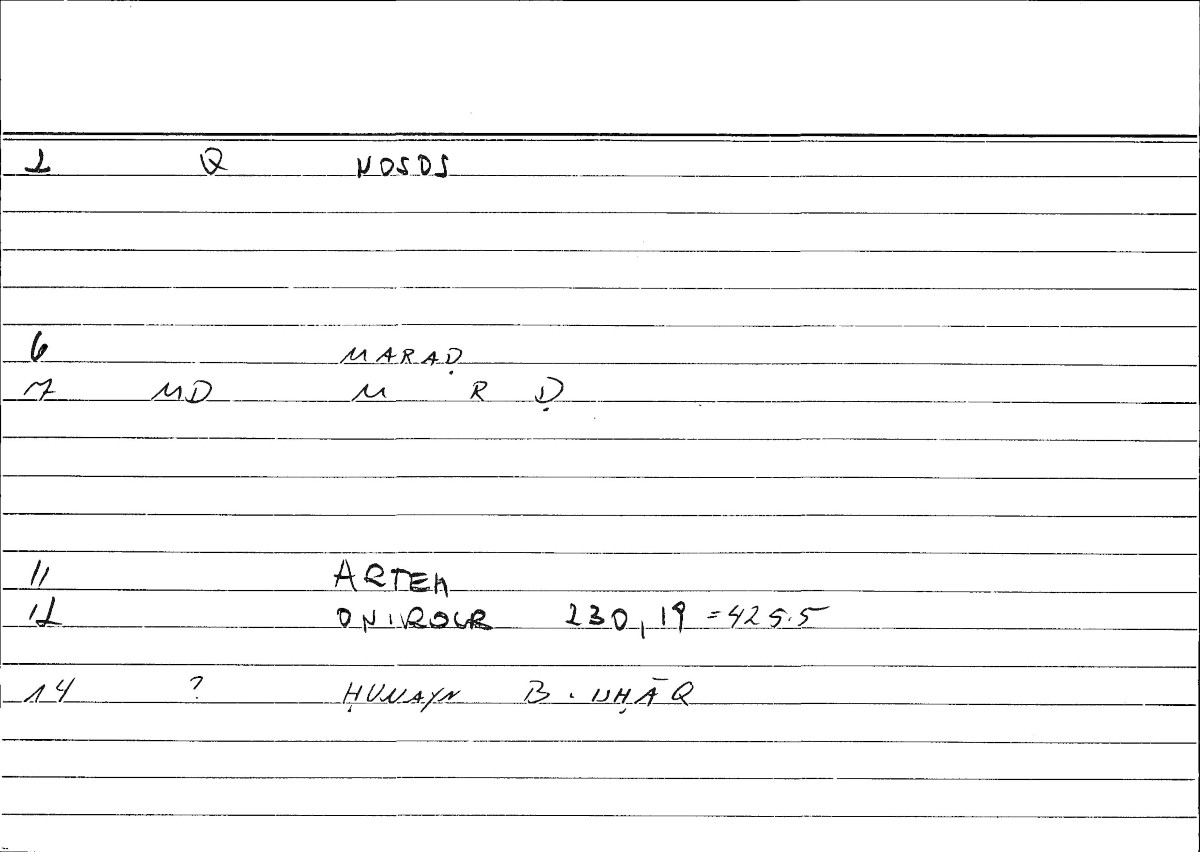 2 Q NOSOS
6 MARAḌ
7 MD M R Ḍ
11 ARTEM
12 ONIROCR 230,19 =425.5
14 ? ḤUNAYN B. ISḤĀQ